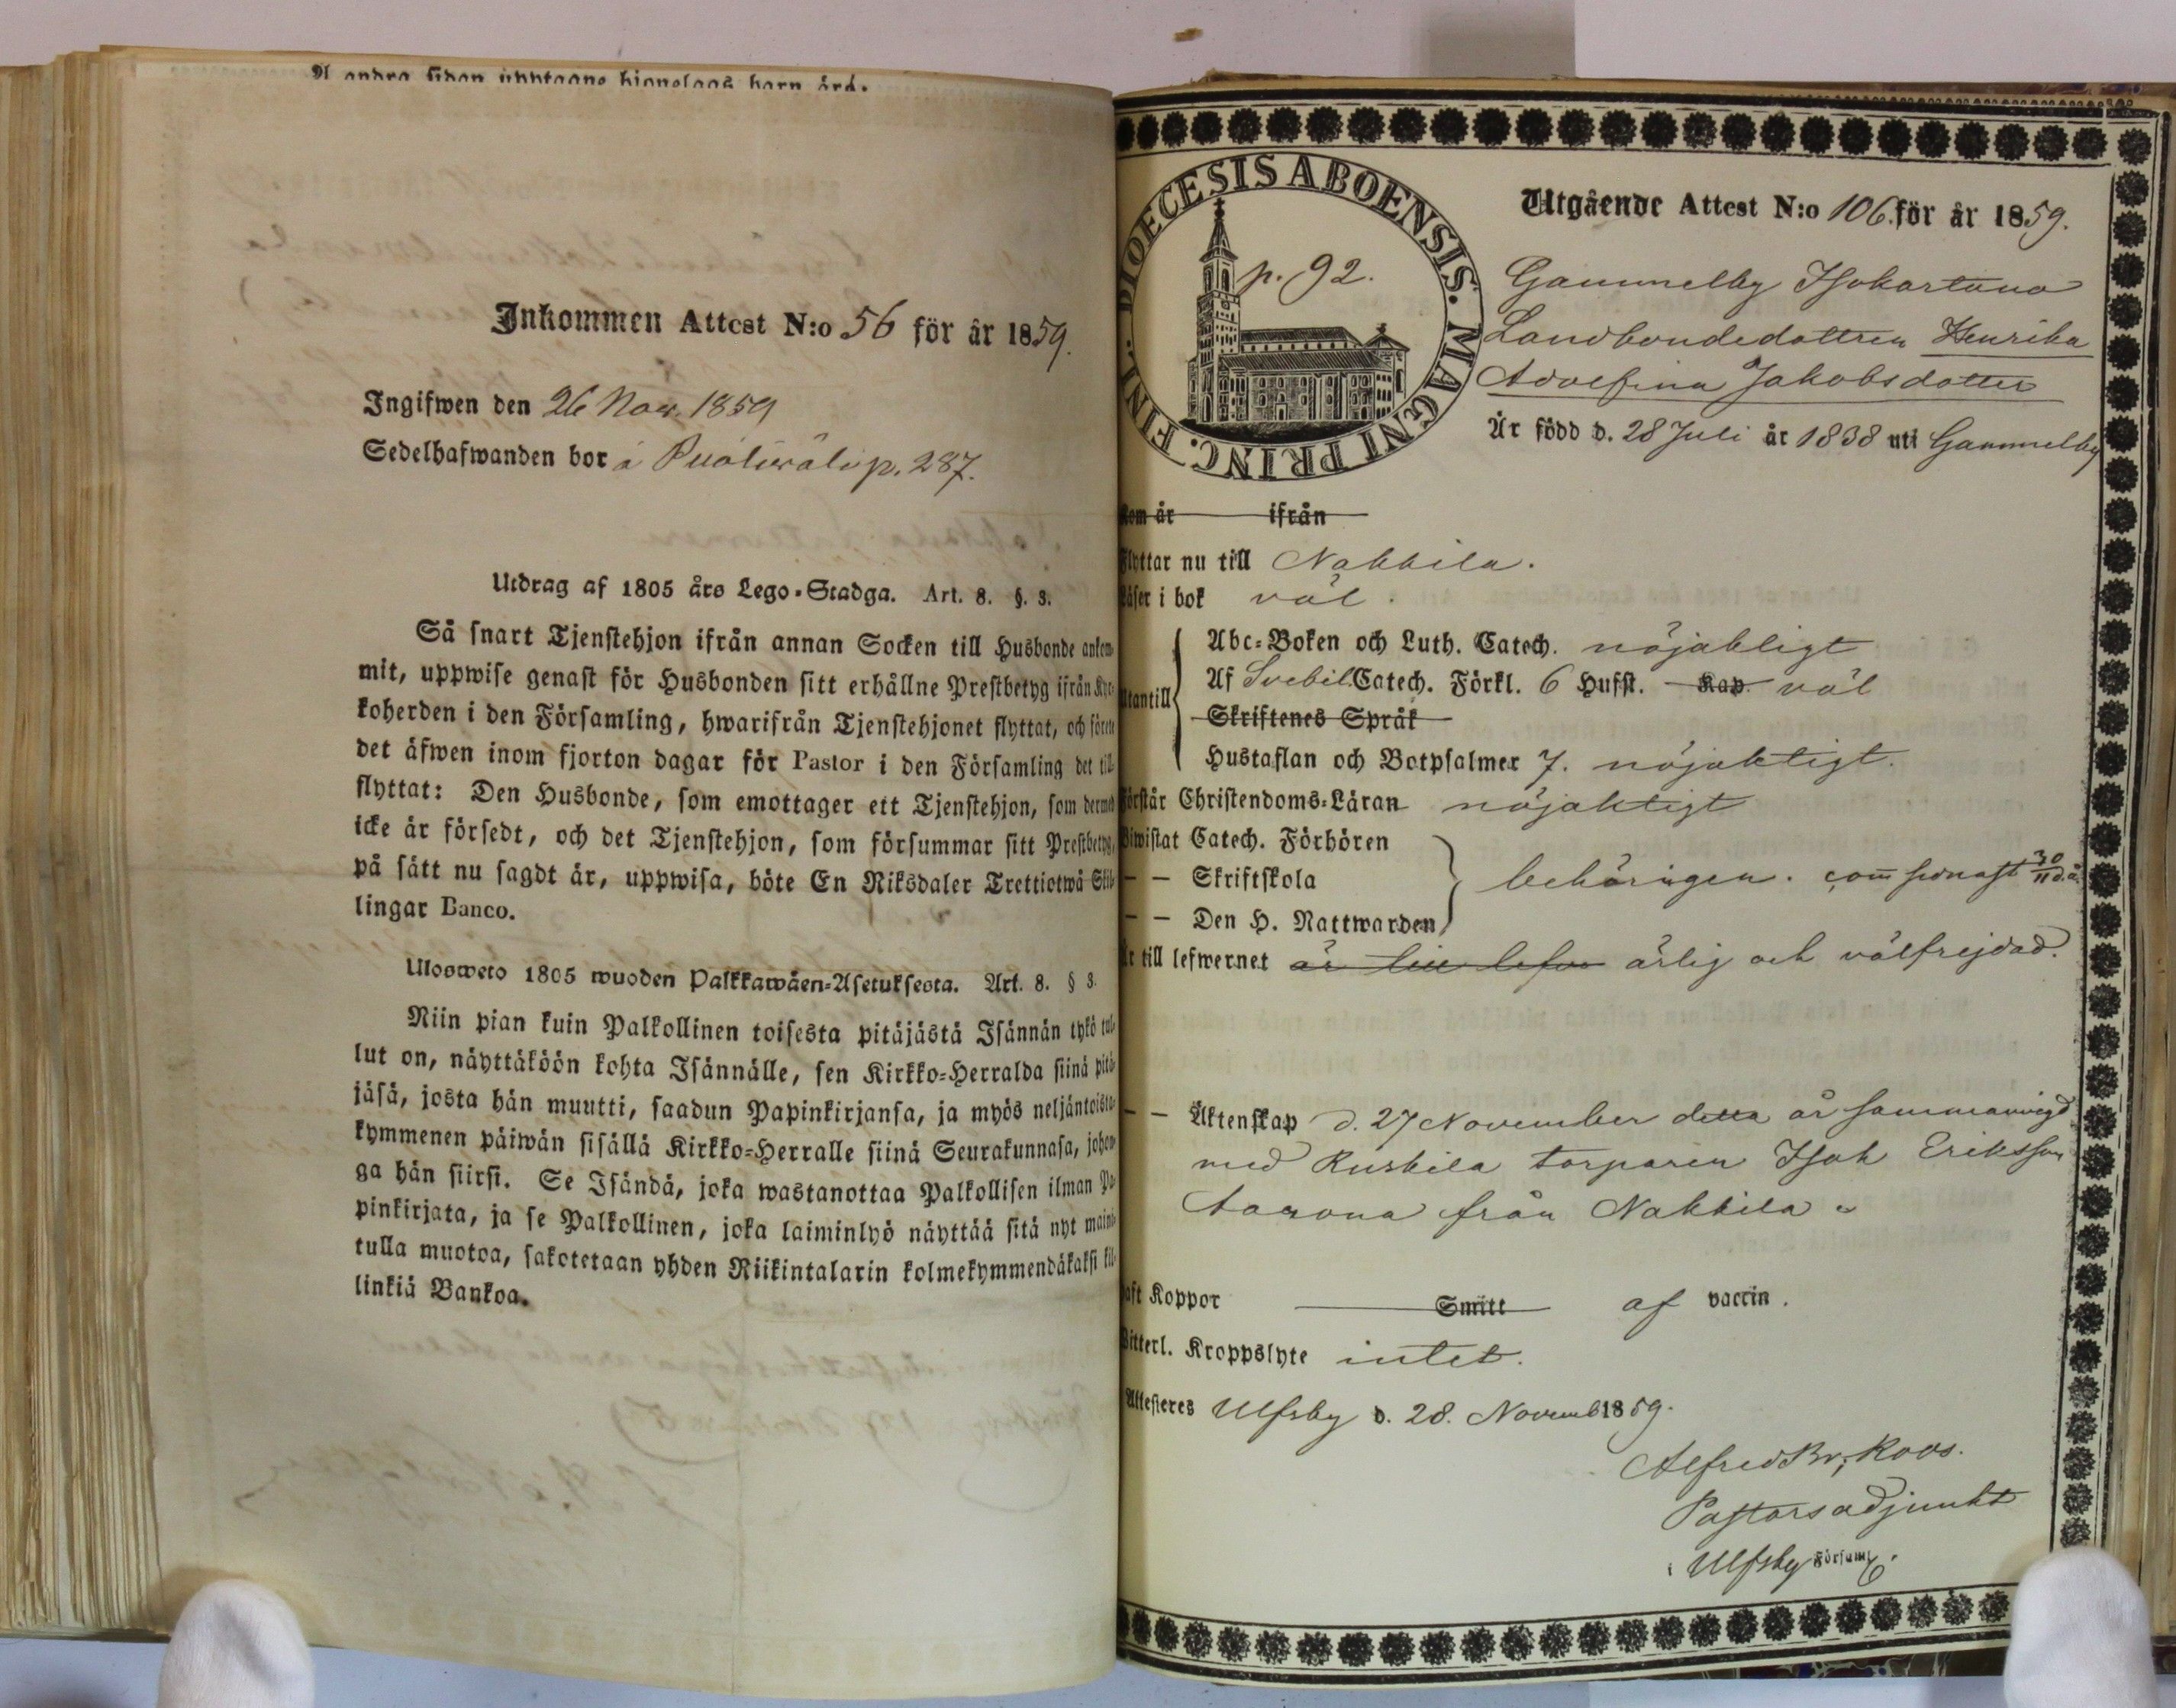 A andra sidan upptagne hionelags barn äro:
Inkommen Attest N:o 56 för år 1859.
Ingifwen den 26 Nov. 1859
Sedelhafwanden bor å p. 287.
Utdrag af 1805 års Lego-Stadga. Art. 8. §. 3.
Så snart Tjenstehjon ifrån annan Socken till Husbonde ankom-
mit, uppwise genast för Husbonden sitt erhållne Prestbetyg ifrån Kyr-
koherden i den Församling, hwarifrån Tjenstehjonet flyttat, och förete
det äfwen inom fjorton dagar för Pastor i den Församling det till-
flyttat: Den Husbonde, som emottager ett Tjenstehjon, som dermed
icke är försedt, och det Tjenstehjon, som försummar sitt Prestbetyg,
på sätt nu sagdt är, uppwisa, böte En Riksdaler Trettiotwå Skil-
lingar Banco.
Ulosweto 1805 wuoden Palkkawäen-Asetuksesta. Art. 8. § 3.
Niin pian kuin Palkollinen toisesta pitäjästä Isännän tykö tul-
lut on, näyttäköön kohta Isännälle, sen Kirkko-Herralda siinä pitä-
jäsä, josta hän muutti, saadun Papinkirjansa, ja myös neljäntoista-
kymmenen päiwän sisällä Kirkko-Herralle siinä Seurakunnasa, johon-
ga hän siirsi. Se Isändä, joka wastanottaa Palkollisen ilman Pa-
pinkirjata, ja se Palkollinen, joka laiminlyö näyttää sitä nyt maini-
tulla muotoa, sakotetaan yhden Riikintalarin kolmekymmendäkaksi kil-
linkiä Bankoa.
DIOECESIS ABOENSIS. MAGNI PRINC. FINL.
p. 92.
Utgående Attest N:o 106. för år 1859.
Gammelby Isokartano
Landbondedottren Henrika
Adolfina Jakobsdotter
Är född d. 28 Juli år 1838 uti Gammelby
Kom år ifrån
Flyttar nu till Nakkila.
Läser i bok väl.
Utantill
Abc-Boken och Luth. Catech. nöjaktigt
Af Svebil. Catech. Förkl. 6 Hufst. Kap. väl
Skriftenes Språk
Hustaflan och Botpsalmer 7. nöjaktigt.
Förstår Christendoms-Läran nöjaktigt
Biwistat Catech. Förhören
— — Skriftskola
— — Den H. Nattwarden
behörigen. com sednast 30/11 d.å.
Är till lefwernet är till lefve ärlig och välfrejdad.
— — Äktenskap d. 27 November detta år sammanvigd
med Ruskila torparen Isak Eriksson
från Nakkila.
Haft Koppor Smitt af vaccin.
Witterl. Kroppslyte intet.
Attesteres Ulfsby d. 28. Novemb 1859.
Alfred Br; Roos.
Pastorsadjunkt
i Ulfsby Församl.